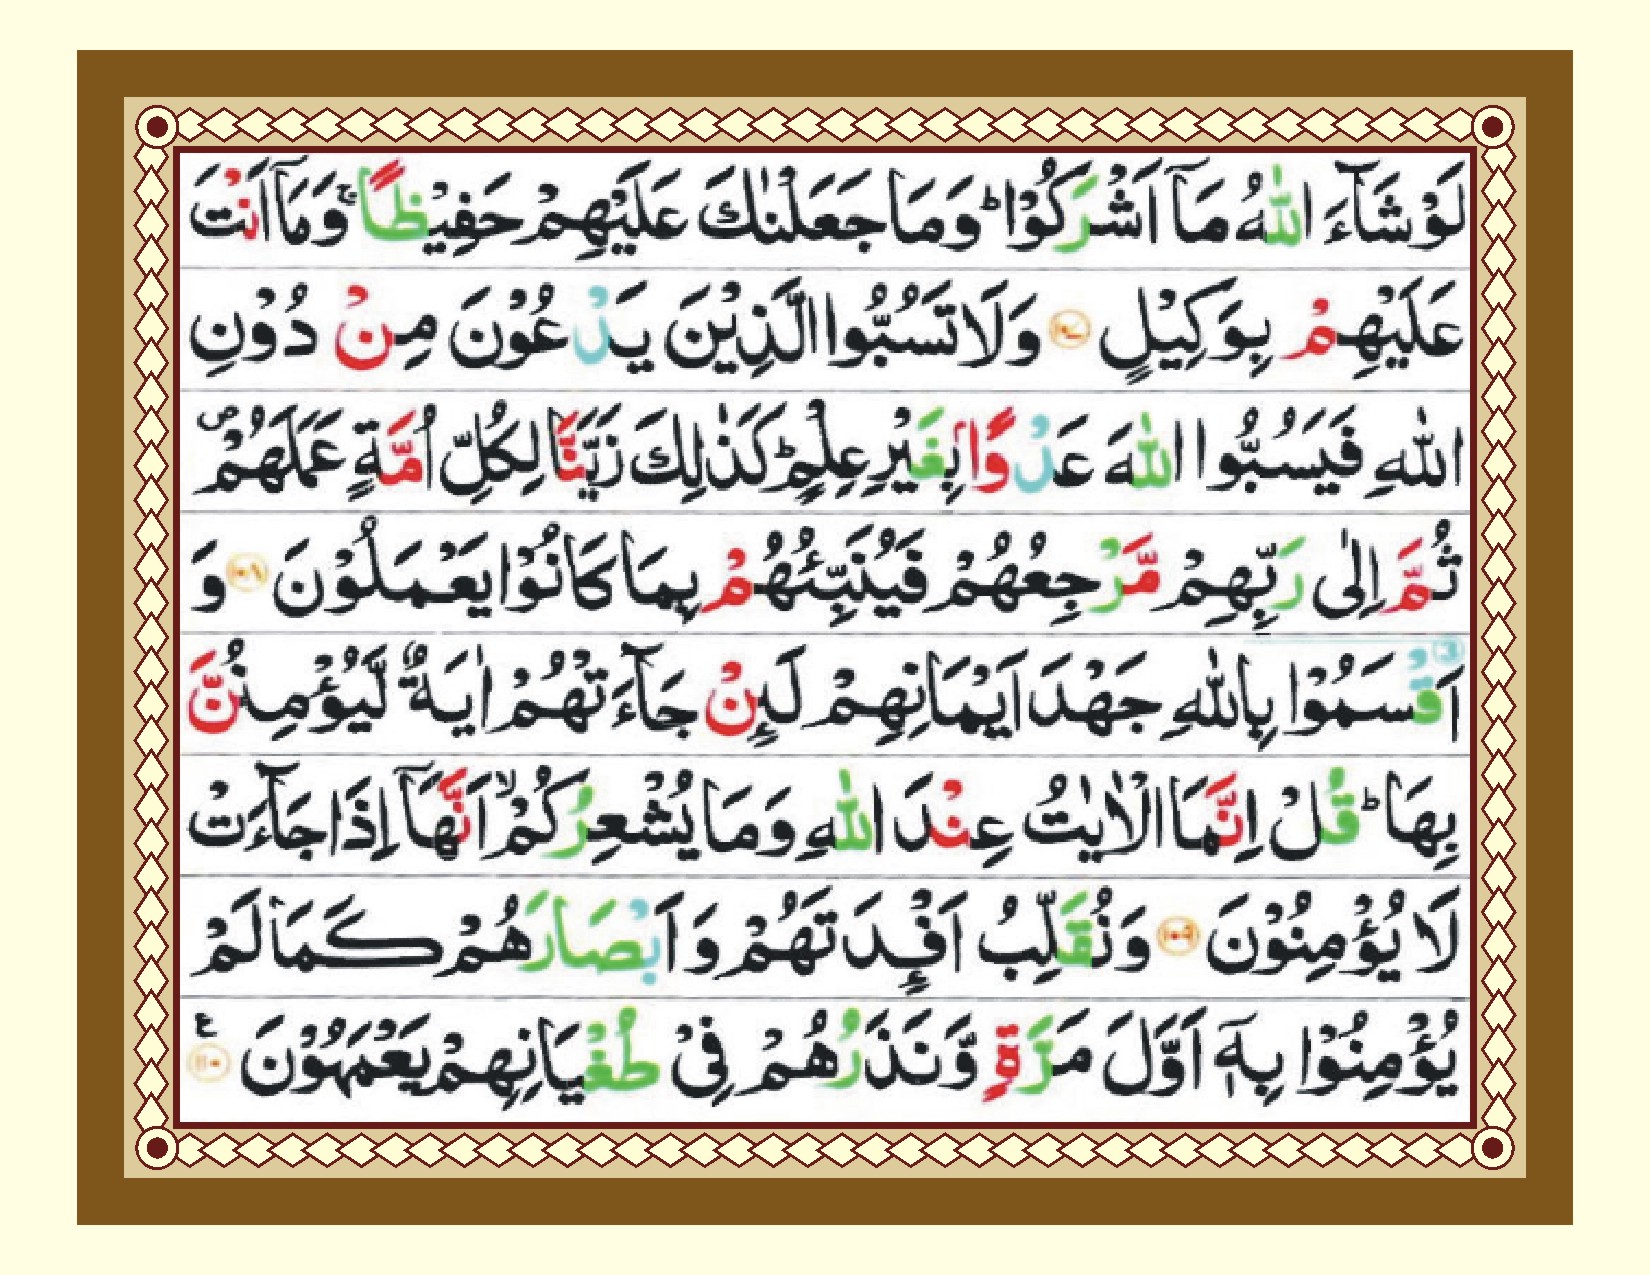 لَوْ شَآءَ اللّٰهُ مَاۤ اَشْرَكُوْا ؕ وَمَا جَعَلْنٰكَ عَلَيْهِمْ حَفِيْظًا ۚ وَمَاۤ اَنْتَ
عَلَيْهِمْ بِوَكِيْلٍ ﴿۱۰۷﴾ وَلَا تَسُبُّوا الَّذِيْنَ يَدْعُوْنَ مِنْ دُوْنِ
اللّٰهِ فَيَسُبُّوا اللّٰهَ عَدْوًۢا بِغَيْرِ عِلْمٍ ؕ كَذٰلِكَ زَيَّنَّا لِكُلِّ اُمَّةٍ عَمَلَهُمْ ۪
ثُمَّ اِلٰى رَبِّهِمْ مَّرْجِعُهُمْ فَيُنَبِّئُهُمْ بِمَا كَانُوْا يَعْمَلُوْنَ ﴿۱۰۸﴾ وَ
اَقْسَمُوْا بِاللّٰهِ جَهْدَ اَيْمَانِهِمْ لَىِٕنْ جَآءَتْهُمْ اٰيَةٌ لَّيُؤْمِنُنَّ
بِهَا ؕ قُلْ اِنَّمَا الْاٰيٰتُ عِنْدَ اللّٰهِ وَمَا يُشْعِرُكُمْ ۙ اَنَّهَاۤ اِذَا جَآءَتْ
لَا يُؤْمِنُوْنَ ﴿۱۰۹﴾ وَنُقَلِّبُ اَفْـِٕدَتَهُمْ وَاَبْصَارَهُمْ كَمَا لَمْ
يُؤْمِنُوْا بِهٖۤ اَوَّلَ مَرَّةٍ وَّنَذَرُهُمْ فِیْ طُغْيَانِهِمْ يَعْمَهُوْنَ ﴿۱۱۰﴾ ع